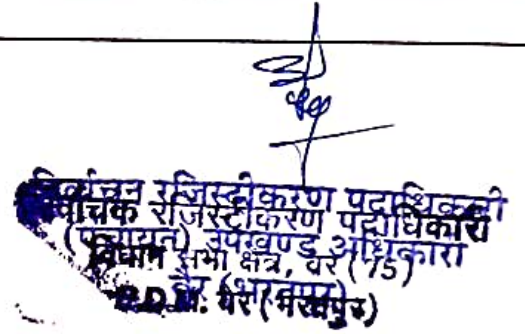 निर्वाचन रजिस्ट्रीकरण पदाधिकारी
निर्वाचक रजिस्ट्रीकरण पदाधिकारी
उपखण्ड अधिकारी
विधान सभा क्षेत्र, वैर (75)
वैर (भरतपुर)
S.D.M. वैर (भरतपुर)